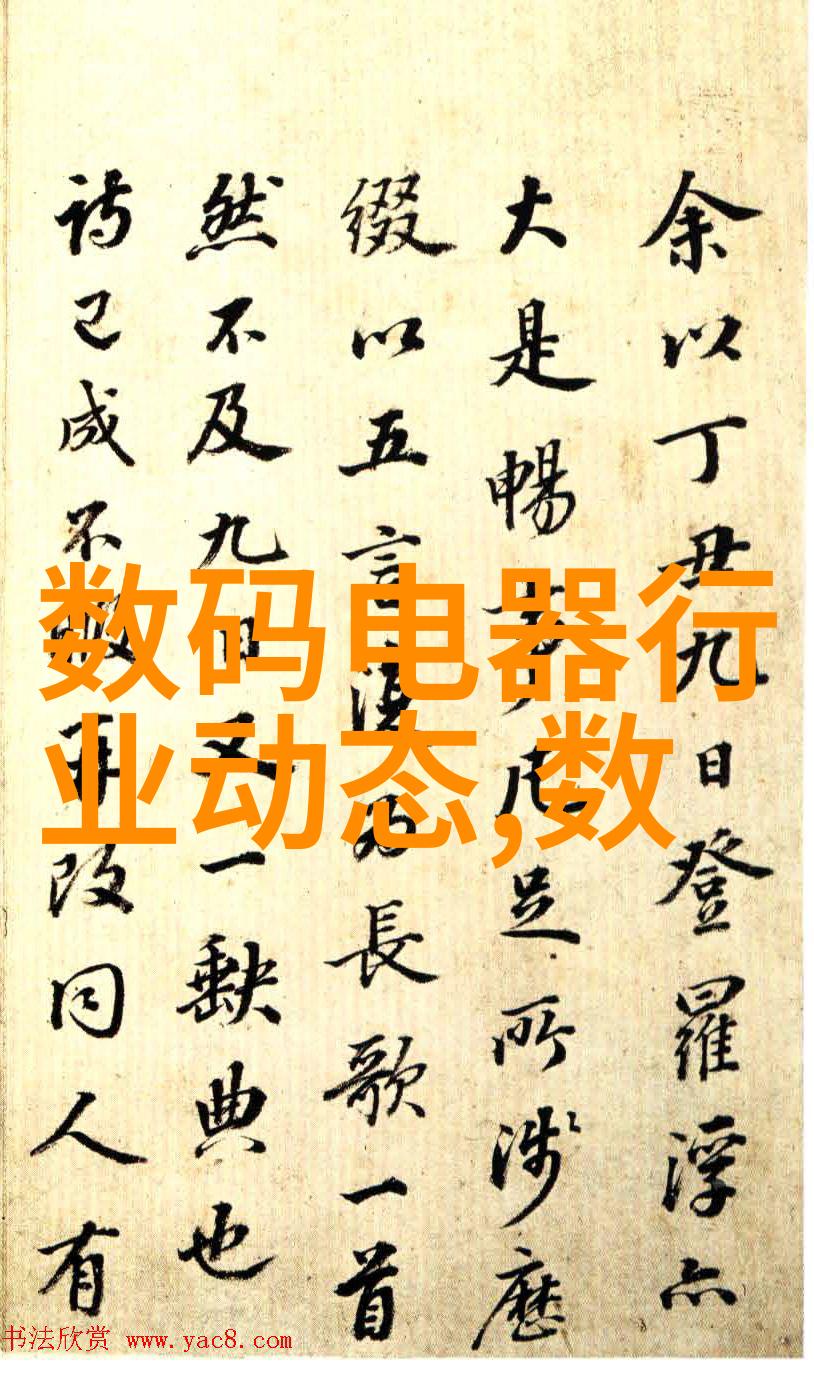 余以丁丑九日登羅浮亦
大是暢足所涉歷
綴以五言復為長歌一首
然不及九日又一缺典也
詩已成不再改同人有
数码电器行
业动态,数
书法欣赏 www.yac8.com